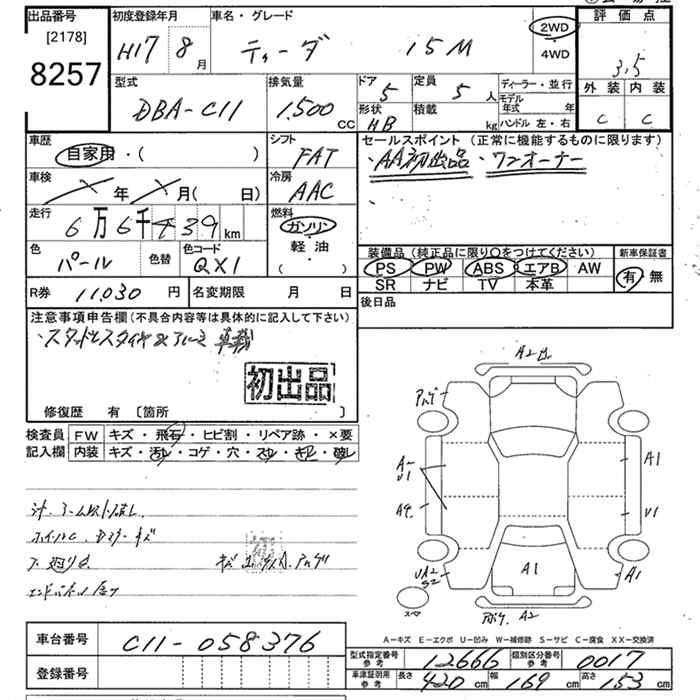 出品番号
[2178]
8257
初度登録年月
H17 8月
車名・グレード
ティーダ 15M
2WD
4WD
評価点
3.5
外装 内装
C C
型式
DBA-C11
排気量
1,500 cc
ドア
5
形状
HB
定員
5人
積載
kg
ディーラー・並行
モデル年式 年
ハンドル 左・右
車歴
自家用・( )
シフト
FAT
セールスポイント (正常に機能するものに限ります)
・AA初出品 ・ワンオーナー
車検
年 月( 日)
冷房
AAC
走行
6万6千439km
燃料
ガソリン
軽・油
( )
色
パール
色替
色コード
QX1
装備品 (純正品に限り○をつけてください)
PS PW ABS エアB AW
SR ナビ TV 本革
新車保証書
有 無
R券 11,030円
名変期限 月 日
後日品
注意事項申告欄 (不具合内容等は具体的に記入して下さい)
初出品
修復歴 有 [箇所 ]
検査員記入欄
FW キズ・飛石・ヒビ割・リペア跡・×要
内装 キズ・汚レ・コゲ・穴・スレ・キレ・破レ
車台番号 C11-058376
登録番号
A2
A1
U1
A1
A1
A2
スペア
A−キズ E−エクボ U−凹み W−補修跡 S−サビ C−腐食 XX−交換済
型式指定番号 参考 12666 類別区分番号 参考 0017
車庫証明用 参考 長さ 420cm 幅 169cm 高さ 153cm